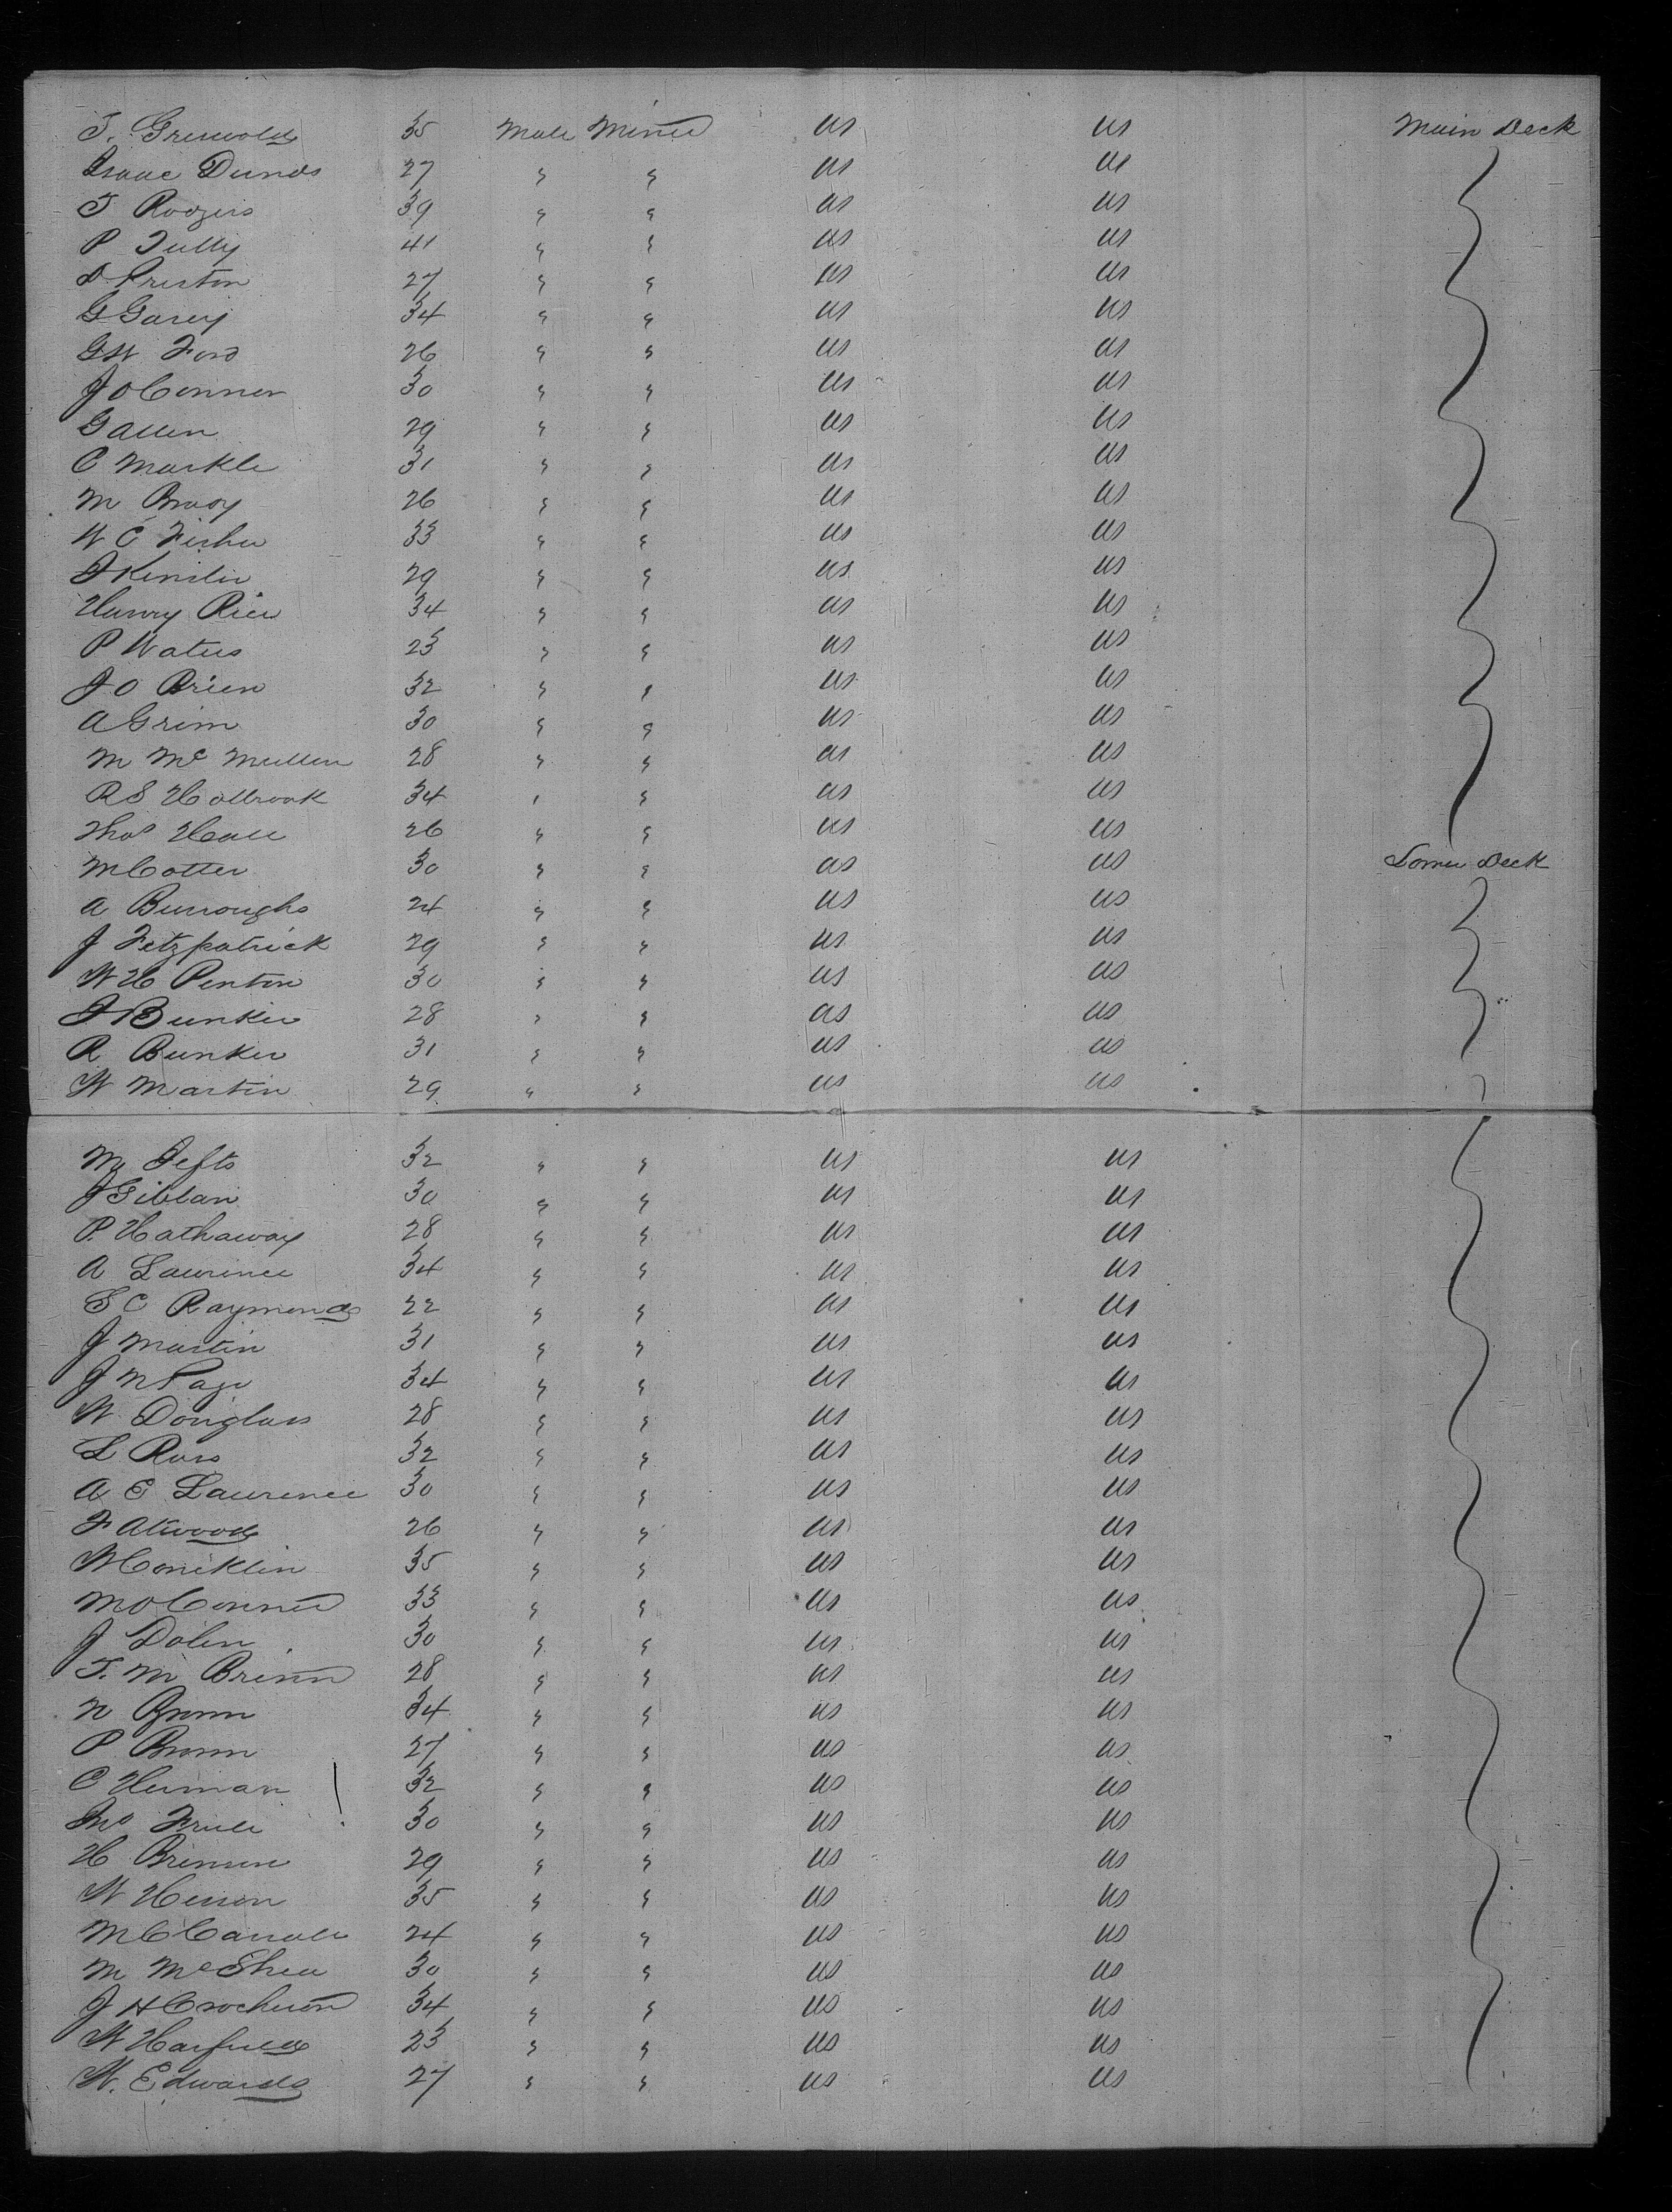 T. Griswold 35 Male Miner US US Main Deck
Isaac Dunds 27 " " US US
T Rodgers 39 " " US US
P Tully 41 " " US US
D Preston 27 " " US US
G Garey 34 " " US US
G W Ford 26 " " US US
J O Connor 30 " " US US
G Allen 29 " " US US
C Markle 31 " " US US
M Bray 26 " " US US
W C Fisher 33 " " US US
J Kensler 29 " " US US
Henry Rice 34 " " US US
P Waters 23 " " US US
J O Brien 32 " " US US
A Grim 30 " " US US
M Mc Mullen 28 " " US US
R S Holbrook 34 " " US US
Thos Hall 26 " " US US
M Cotter 30 " " US US Lower Deck
A Burroughs 24 " " US US
J Fitzpatrick 29 " " US US
W H Penton 30 " " US US
J Bunker 28 " " US US
R Bunker 31 " " US US
W Martin 29 " " US US
M Tefts 32 " " US US
J Giblan 30 " " US US
P. Hathaway 28 " " US US
A Laurence 34 " " US US
S C Raymond 22 " " US US
J Martin 31 " " US US
J M Page 34 " " US US
W Douglass 28 " " US US
L Ross 32 " " US US
A E Laurence 30 " " US US
F Atwood 26 " " US US
W Conklin 35 " " US US
M O Conner 33 " " US US
J Dolen 30 " " US US
T. M Brinn 28 " " US US
N Brown 34 " " US US
P Brown 27 " " US US
C Herman 32 " " US US
Jno 30 " " US US
H 29 " " US US
W 35 " " US US
M C Carroll 24 " " US US
M McShea 30 " " US US
J H Crocheron 34 " " US US
W Harfield 23 " " US US
W. Edwards 27 " " US US